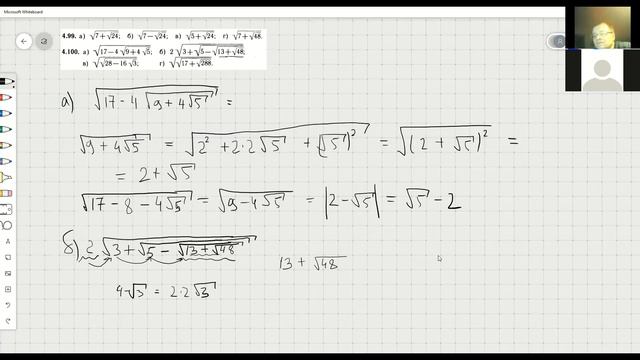 Microsoft Whiteboard
4.99. а) √(7+√24); б) √(7−√24); в) √(5+√24); г) √(7+√48).
4.100. а) √(17−4√(9+4√5)); б) 2√(3+√(5−√(13+√48)));
в) √(√(28−16√3)); г) √(√(17+√288)).
а) √(17−4√(9+4√5)) =
√(9+4√5) = √(2²+2·2√5+(√5)²) = √((2+√5)²) =
= 2+√5
√(17−8−4√5) = √(9−4√5) = |2−√5| = √5−2
б) 2√(3+√(5−√(13+√48)))
13+√48
4√3 = 2·2√3